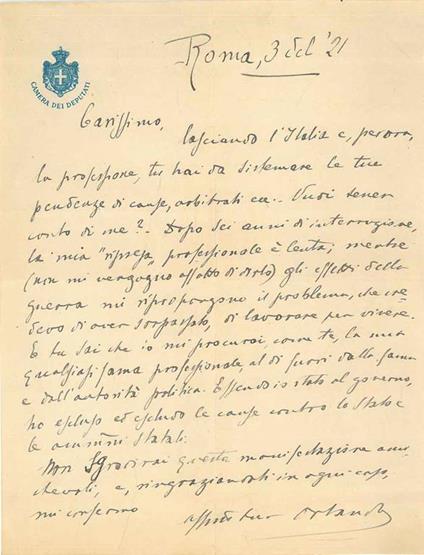 CAMERA DEI DEPUTATI
Roma, 3 dbr '21
Carissimo,
lasciando l'Italia e, per ora,
la professione, tu hai da sistemare le tue
pendenze di cause, arbitrati ecc. Vuoi tener
conto di me? - Dopo sei anni di interruzione,
la mia "ripresa" professionale è lenta; mentre
(non mi vergogno affatto di dirlo) gli effetti della
guerra mi ripropongono il problema, che cre-
devo di aver sorpassato, di lavorare per vivere.
E tu sai che io mi procurai, come te, la mia
qualsiasi fama professionale, al di fuori della fama
e dall'autorità politica. Essendo io stato al governo,
ho escluso ed escludo le cause contro lo Stato e
le ammini statali.
Non questa manifestazione ami-
chevole, e, ringraziandoti in ogni caso,
mi confermo
tuo Orlando